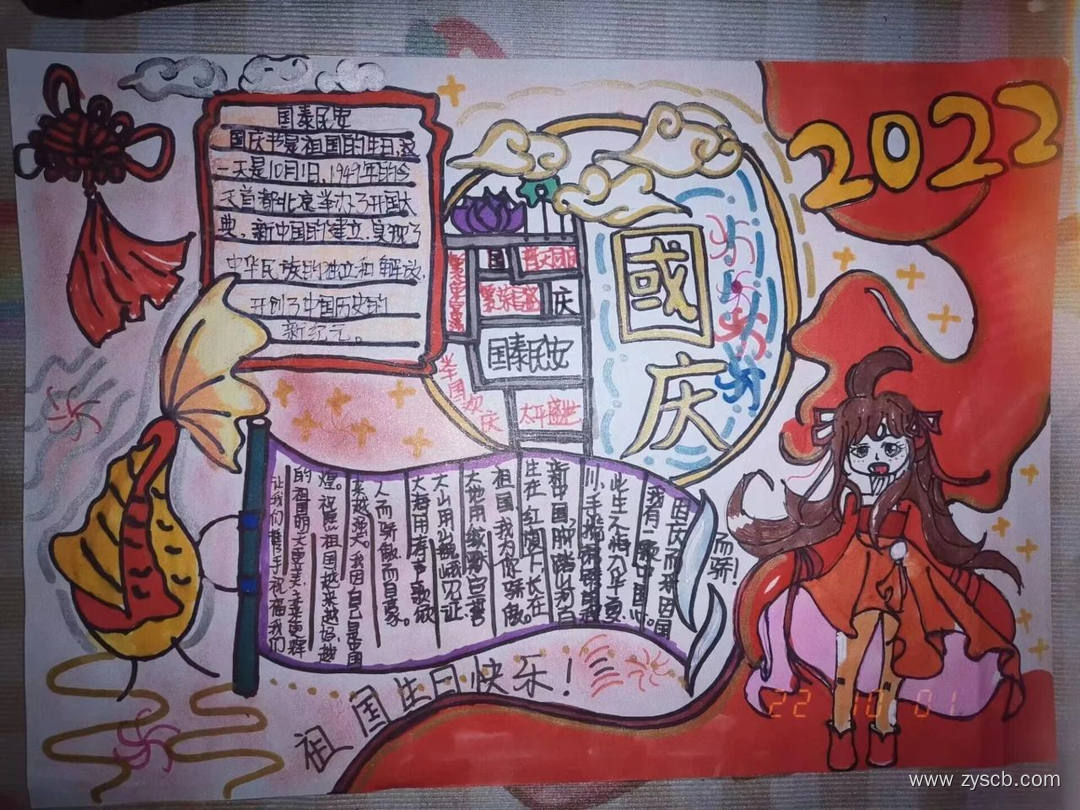 国泰民安
国庆节是祖国的生日,这
一天是10月1日,1949年的今
天首都北京举办了开国大
典。新中国的建立,实现了
中华民族的独立和解放,
开创了中国历史的
新纪元。
2022
國
庆
国
普天同庆
繁荣昌盛
庆
国泰民安
太平盛世
举国欢庆
因庆而来因国
而骄!
我有一颗中国心。
此生不悔入华夏
新中国,脚踏山
生在红旗下,长在
祖国,我为你骄傲。
大地用
大山用巍峨见证
大海用涛声歌颂
人而骄傲而自豪。
来越强大。我因自己是中国
煌。祝愿祖国越来越好,越
的祖国明天更美丽更辉
让我们携手祝福我们
祖国生日快乐!
22 10 01
www.zyscb.com